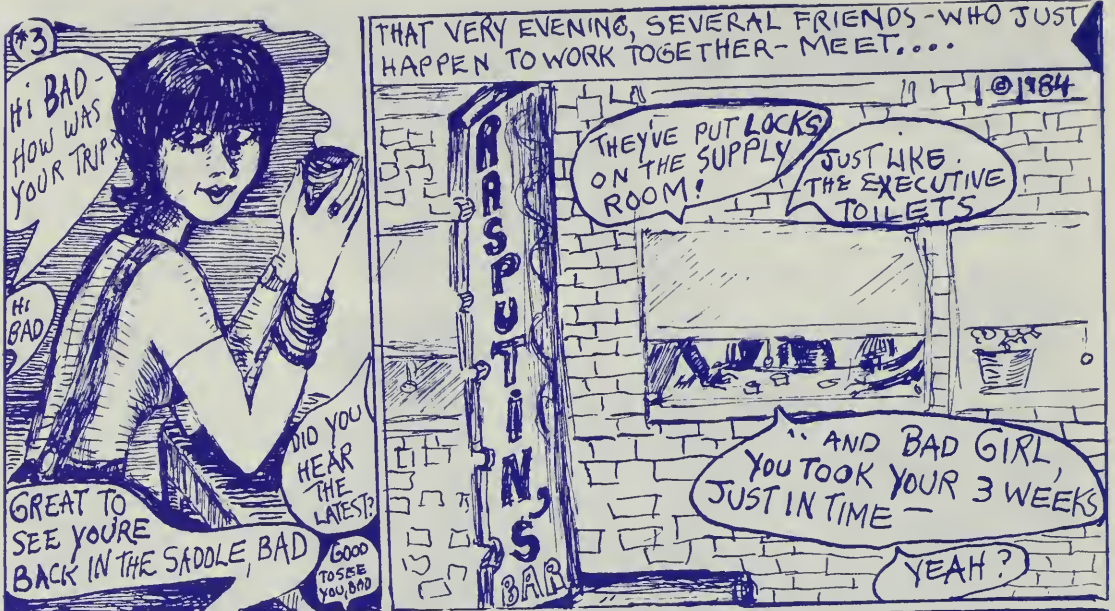 #3
HI BAD -
HOW WAS
YOUR TRIP?
HI
BAD
DID YOU
HEAR
THE
LATEST?
GREAT TO
SEE YOU'RE
BACK IN THE SADDLE, BAD
GOOD
TO SEE
YOU, BAD
THAT VERY EVENING, SEVERAL FRIENDS - WHO JUST
HAPPEN TO WORK TOGETHER - MEET....
©1984
THEY'VE PUT LOCKS
ON THE SUPPLY
ROOM!
JUST LIKE
THE EXECUTIVE
TOILETS
RASPUTIN'S
BAR
.. AND BAD GIRL,
YOU TOOK YOUR 3 WEEKS
JUST IN TIME —
YEAH?